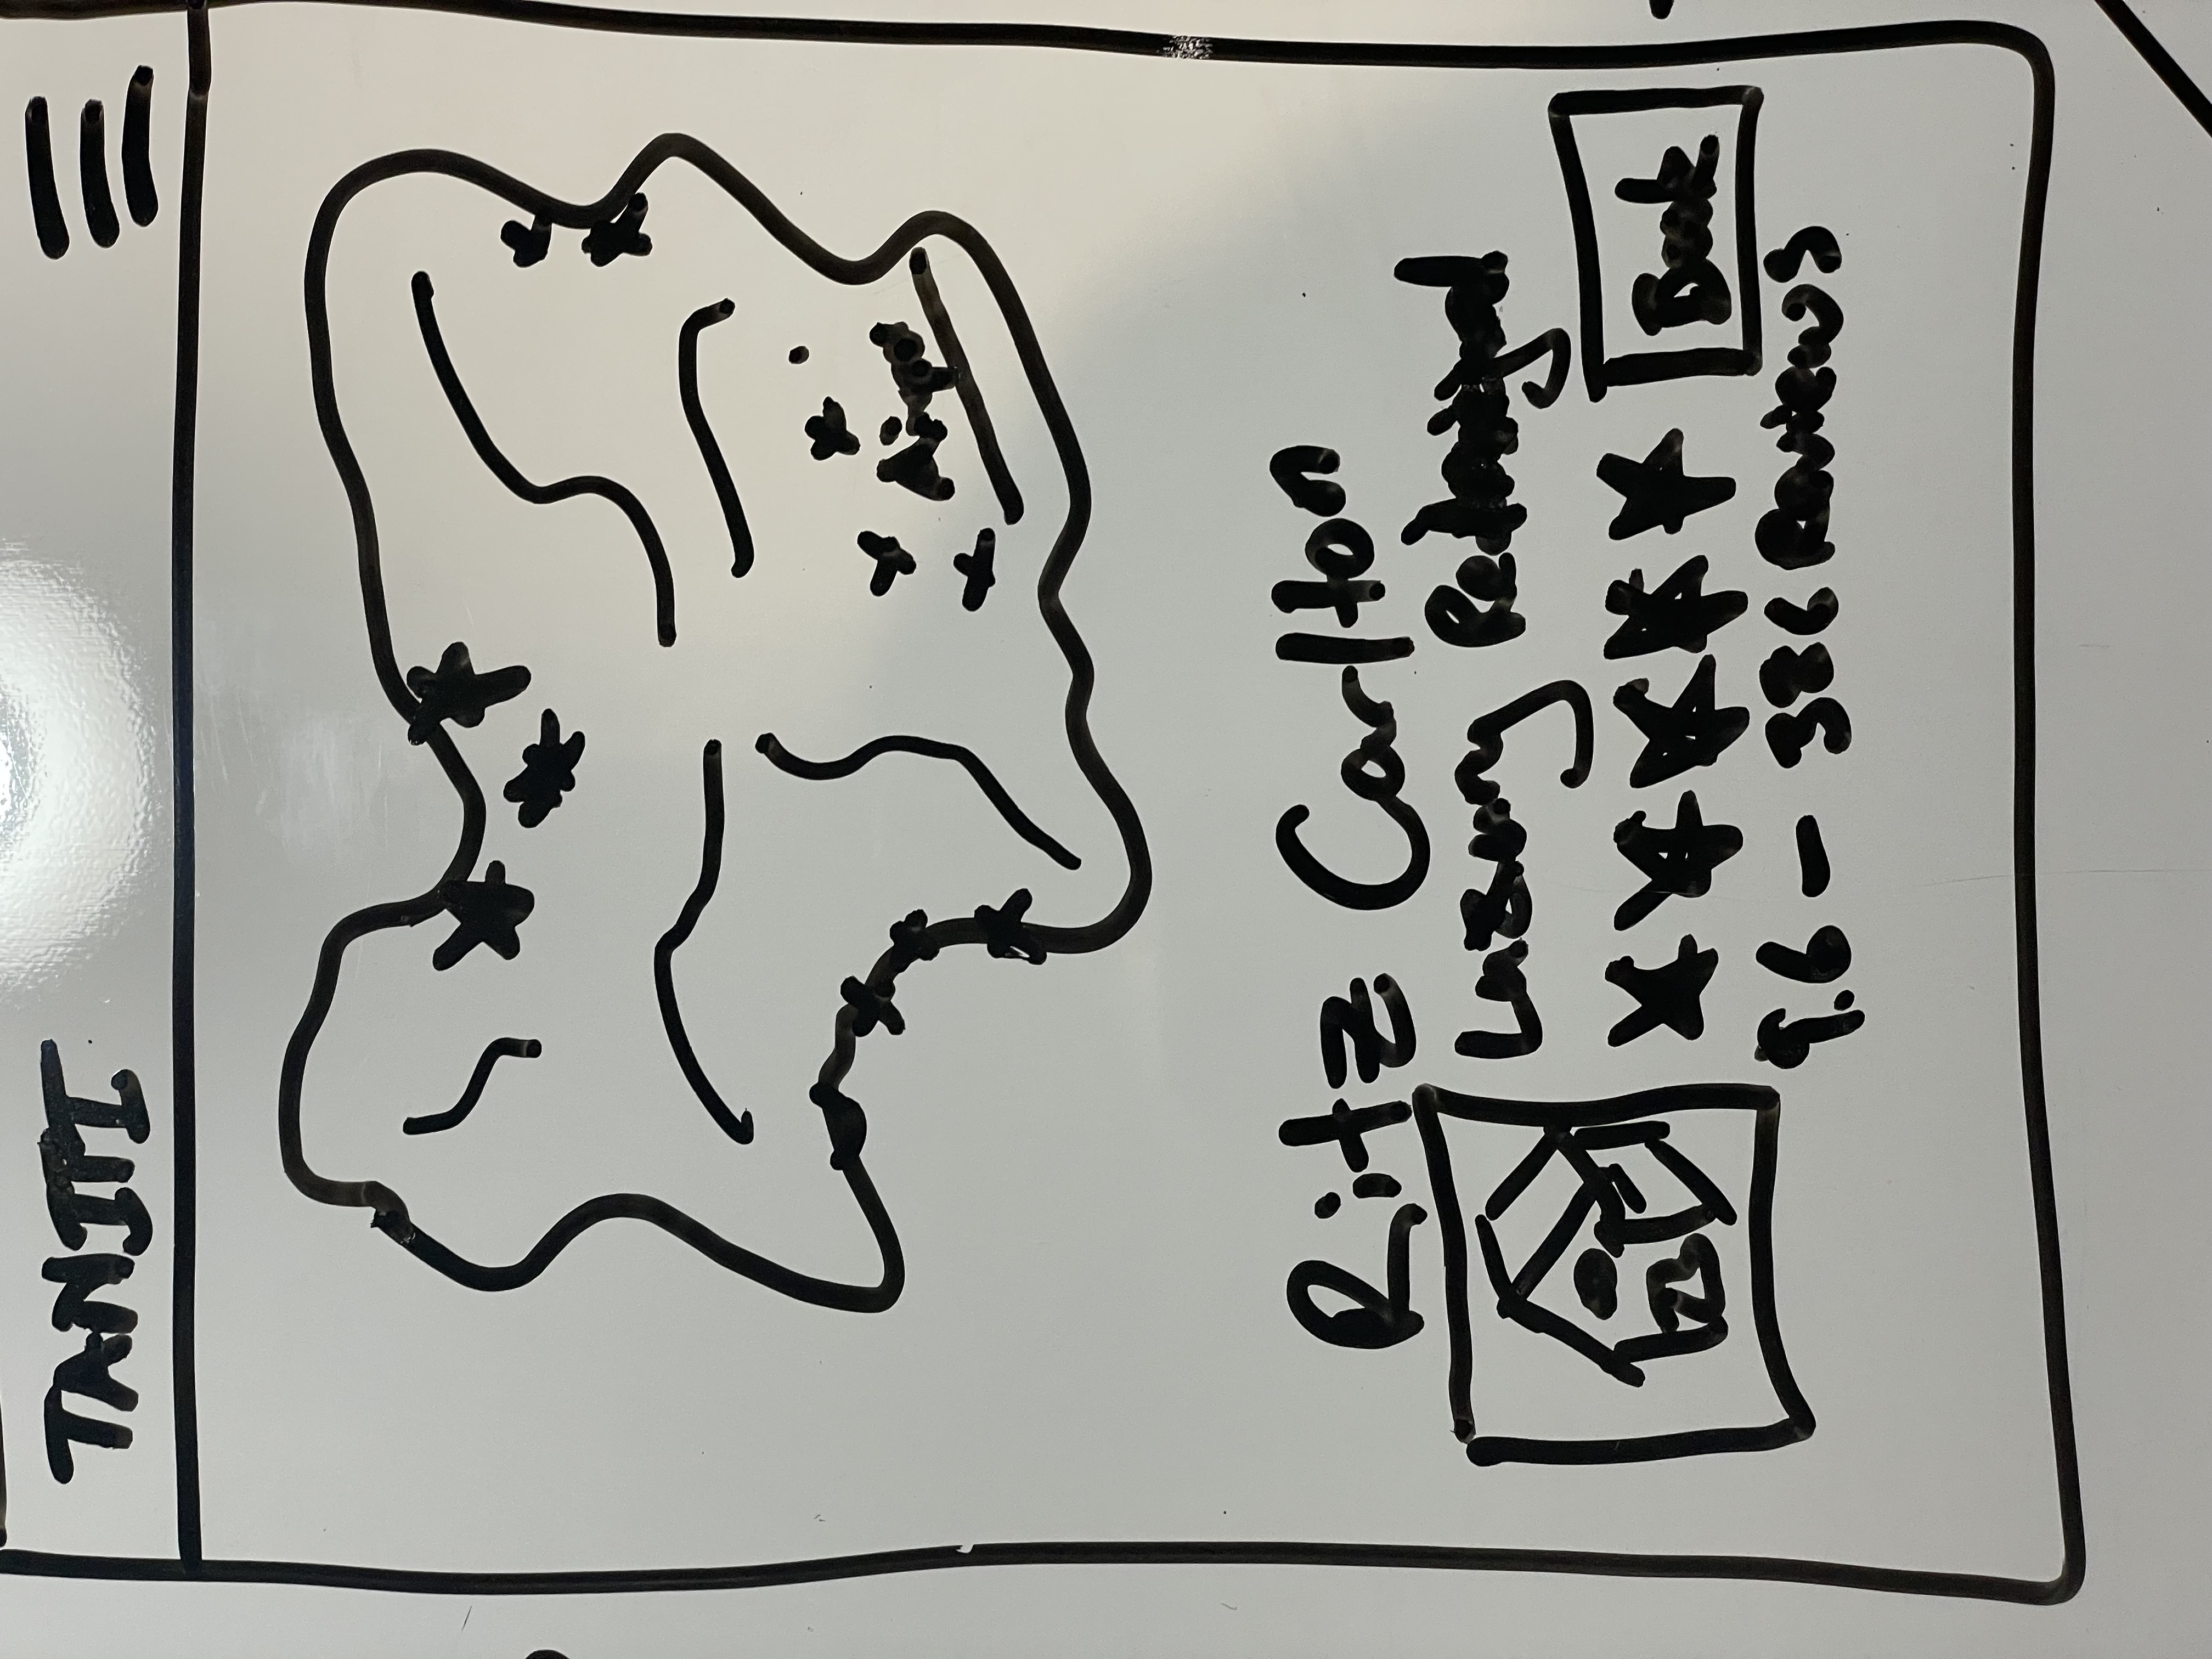 TANITI
Airpo
Ritz Carlton
Luxury Redesigned
Book
9.6 — 386 Reviews